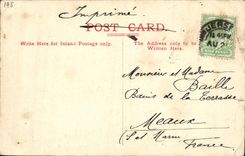 195
Imprimé
POST CARD.
Write Here for Inland Postage only.
The Address only to be
Written Here.
AU 2
Monsieur et Madame
Baille
de la Terrasse
Meaux
(S et Marne
France